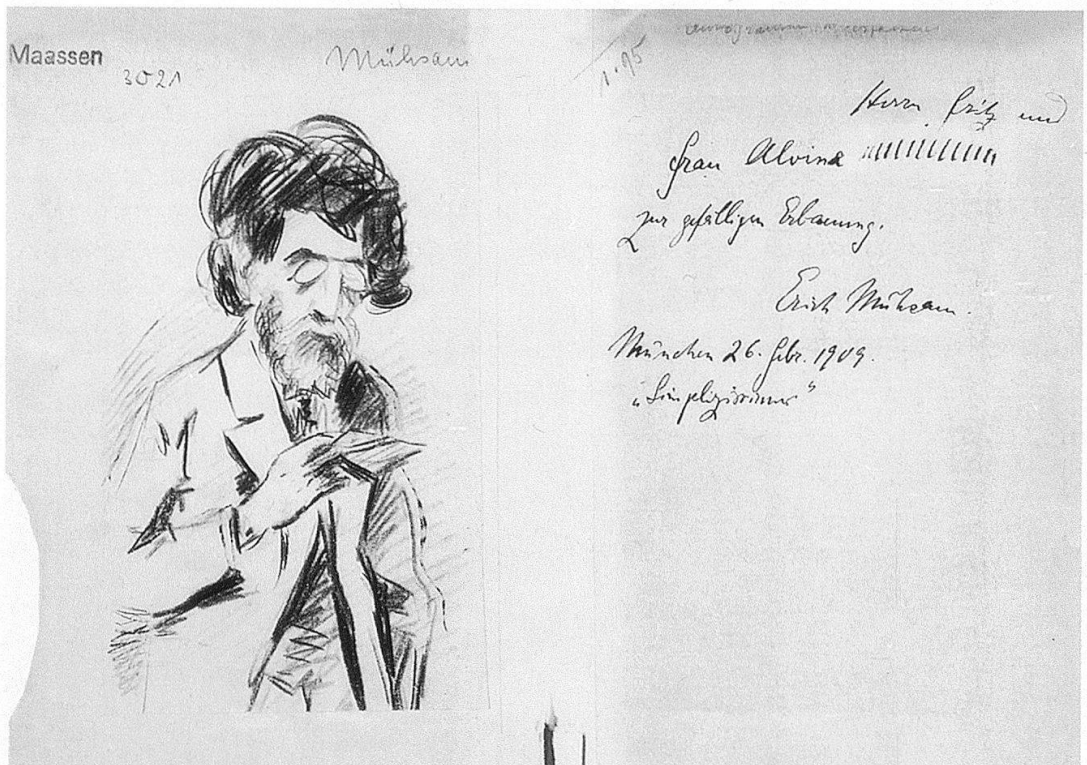 Maassen
3021
Mühsam
1.95
Herrn Fritz und
Frau Alvine
zur gefälligen Erbauung.
Erich Mühsam.
München 26. Febr. 1909.
„Simplizissimus“